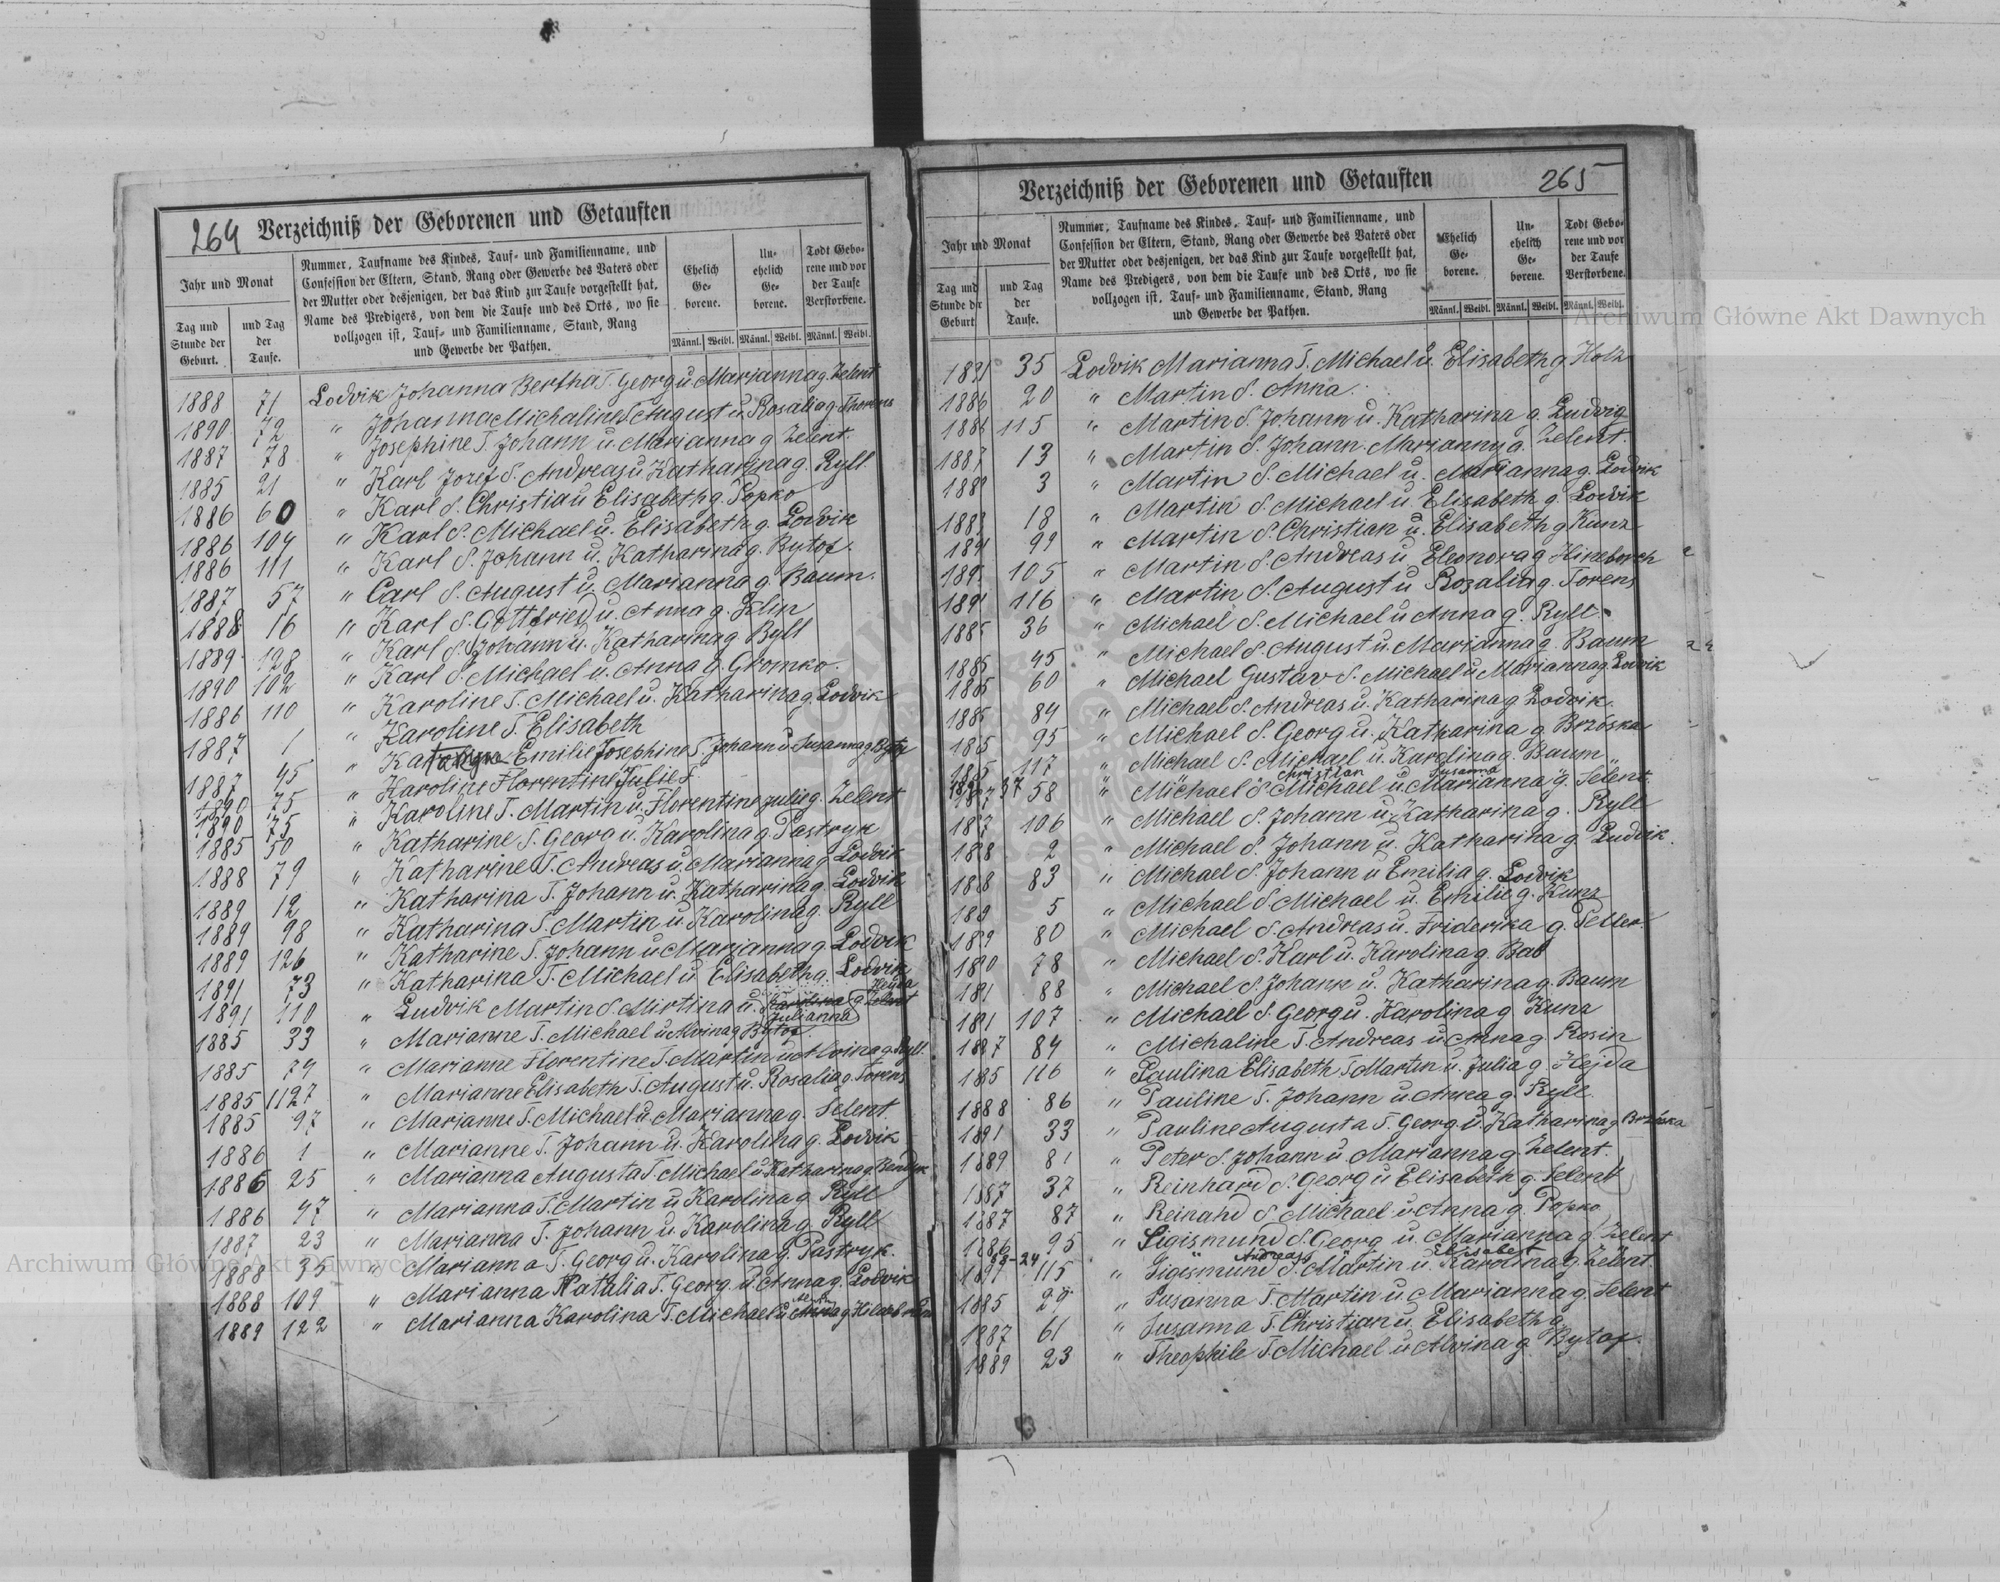 264 Verzeichniß der Geborenen und Getauften
Jahr und Monat
Tag und Stunde der Geburt.
und Tag der Taufe.
Nummer, Taufname des Kindes, Tauf- und Familienname, und
Confession der Eltern, Stand, Rang oder Gewerbe des Vaters oder
der Mutter oder desjenigen, der das Kind zur Taufe vorgestellt hat,
Name des Predigers, von dem die Taufe und des Orts, wo sie
vollzogen ist, Tauf- und Familienname, Stand, Rang
und Gewerbe der Pathen.
Ehelich Ge- borene.
Un- ehelich Ge- borene.
Todt Gebo- rene und vor der Taufe Verstorbene.
Männl. Weibl. Männl. Weibl. Männl. Weibl.
1888 71 Lodvik Johanna Bertha T. Georg u. Marianna g. Zelent
1890 72 " Johanna Michaline T. August u. Rosalia g. Thorens
1887 78 " Josephine T. Johann u. Marianna g. Zelent.
1885 21 " Karl Josef S. Andreas u Katharina g. Ryll
1886 60 " Karl S. Christian u Elisabeth g. Popko
1886 104 " Karl S. Michael u. Elisabeth g. Lodvik
1886 111 " Karl S. Johann u. Katharina g. Bytof.
1887 57 " Carl S. August u. Marianna g. Baum.
1888 16 " Karl S. Gottfried u. Anna g.
1889 128 " Karl S. Johann u. Katharina g. Ryll
1890 102 " Karl S. Michael u. Anna g. Gromko.
1886 110 " Karoline T. Michael u. Katharina g. Lodvik
1887 1 " Karoline T. Elisabeth
1887 45 " Emilie Josephine T. Johann u. Susanna g. Bytof
1890 75 " Karoline Florentine Julie T.
1890 75 " Karoline T. Martin u. Florentine Julie g. Zelent
1885 50 " Katharine T. Georg u. Karolina g. Pastryk
1888 79 " Katharine T. Andreas u. Marianna g. Lodvik
1889 12 " Katharina T. Johann u. Katharina g. Lodvik
1889 98 " Katharina T. Martin u. Karolina g. Ryll
1889 126 " Katharine T. Johann u Marianna g. Lodvik
1891 73 " Katharina T. Michael u Elisabeth g. Lodvik
Hejda
1891 110 " Ludvik Martin S. Mirtina u. Karolina g. Zelent
Julianna
1885 33 " Marianne T. Michael u Alvina g. Bytof
1885 79 " Marianne Florentine T. Martin u Alvina g. Ryll.
1885 1127 " Marianne Elisabeth T. August u. Rosalia g. Torens
1885 97 " Marianne T. Michael u. Marianna g. Selent.
1886 1 " Marianne T. Johann u. Karolina g. Lodvik
1886 25 " Marianna Augusta T. Michael u. Katharina g.
1886 97 " Marianna T. Martin u Karolina g. Ryll
1887 23 " Marianna T. Johann u. Karolina g. Ryll
1888 35 " Marianna T. Georg u. Karolina g. Pastryk.
1888 109 " Marianna Natalia T. Georg u Anna g. Lodvik
1889 122 " Marianna Karolina T. Michael u Anna g.
Verzeichniß der Geborenen und Getauften 265
Jahr und Monat
Tag und Stunde der Geburt
und Tag der Taufe.
Nummer, Taufname des Kindes, Tauf- und Familienname, und
Confession der Eltern, Stand, Rang oder Gewerbe des Vaters oder
der Mutter oder desjenigen, der das Kind zur Taufe vorgestellt hat,
Name des Predigers, von dem die Taufe und des Orts, wo sie
vollzogen ist, Tauf- und Familienname, Stand, Rang
und Gewerbe der Pathen.
Ehelich Ge- borene.
Un- ehelich Ge- borene.
Todt Gebo- rene und vor der Taufe Verstorbene.
Männl. Weibl. Männl. Weibl. Männl. Weibl.
1891 35 Lodvik Marianna T. Michael u. Elisabeth g Holz
1886 20 " Martin S. Anna.
1886 115 " Martin S. Johann u. Katharina g. Ludvig
1887 13 " Martin S. Johann Marianny g. Zelent.
3 " Martin S. Michael u. Marianna g. Lodvik
18 " Martin S. Michael u. Elisabeth g. Lodvik
99 " Martin S. Christian u. Elisabeth g Kunz
105 " Martin S. Andreas u Eleonora g
116 " Martin S. August u Rozalia g. Torens
1885 36 " Michael S. Michael u Anna g. Ryll.
1885 45 " Michael S. August u. Marianna g. Baum
1885 60 " Michael Gustav S. Michael u Marianna g. Lodvik
1885 84 " Michael S. Andreas u. Katharina g Lodvik.
95 " Michael S. Georg u. Katharina g. Brzóska
117 " Michael S. Michael u. Karolina g. Baum
Christian Susanna
37 58 " Michael S. Michael u. Marianna g. Selent.
106 " Michael S. Johann u. Katharina g. Ryll
2 " Michael S. Johann u. Katharina g. Ludvik.
83 " Michael S. Johann u Emilia g. Lodvik
5 " Michael S. Michael u. Emilie g. Kunz
80 " Michael S. Andreas u. Friderika g.
78 " Michael S. Karl u. Karolina g. Bab
88 " Michael S. Johann u. Katharina g. Baum
107 " Michael S. Georg u. Karolina g Kunz
1887 84 " Michaline T. Andreas u Anna g. Rosin
116 " Paulina Elisabeth T. Martin u. Julia g. Hejda
1888 86 " Pauline T. Johann u Anna g. Ryll
1891 33 " Pauline Augusta T. Georg u. Katharina g Brzóska
1889 81 " Peter S. Johann u. Marianna g. Zelent.
1887 37 " Reinhard S. Georg u Elisabeth g. Selent
1887 87 " Reinahd S. Michael u Anna g. Popko
1886 95 " Sigismund S. Georg u. Marianna g. Zelent
89-24 Andreas Elisabet
1891 115 " Sigismund S. Martin u. Karolina g. Zelent.
1885 29 " Susanna T. Martin u. Marianna g. Selent
1887 61 " Susanna T. Christian u. Elisabeth g.
1889 23 " Theophile T. Michael u Alvina g. Bytof.
Archiwum Główne Akt Dawnych
Archiwum Główne Akt Dawnych